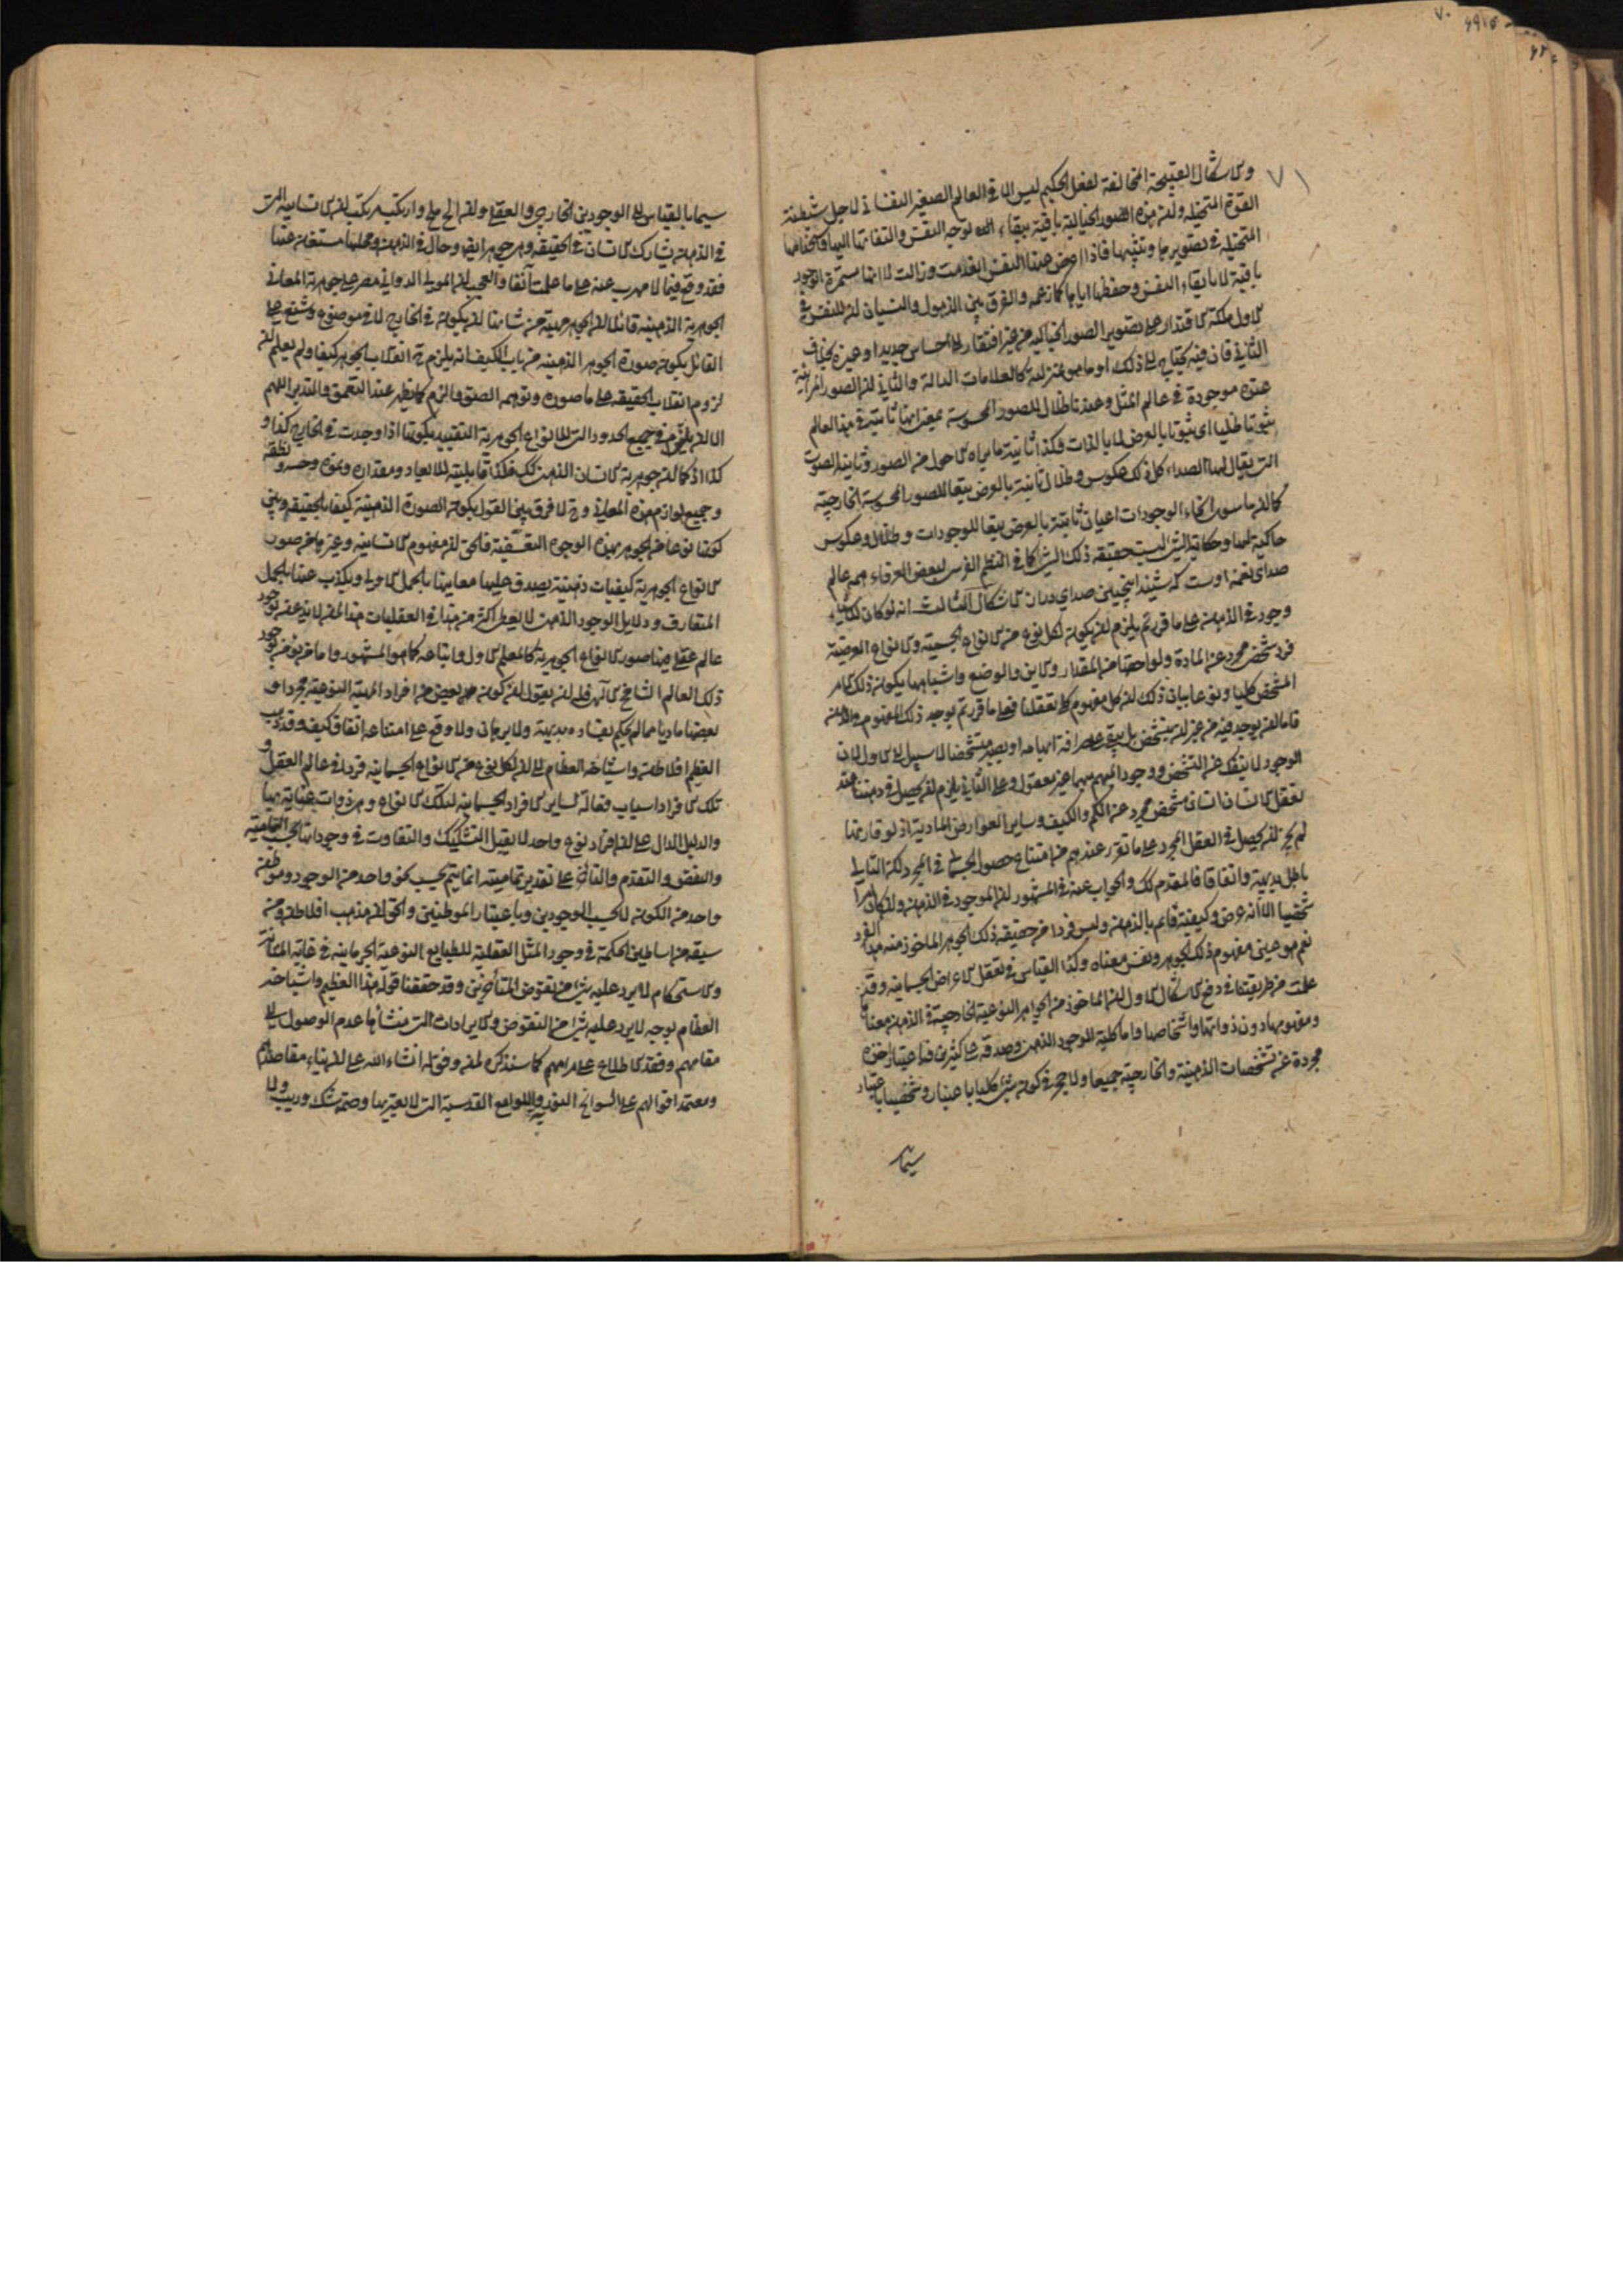 ٧٠
٧١
والاشكال القبيحة المخالفة لفعل الحكيم ليس الا فى العالم الصغير النفسانى لاجل شيطنة
القوة المتخيلة وان هذه الصور الخيالية باقية ببقاء توجه النفس والتفاتها اليها واستخدامها
المتخيلة فى تصويرها وتثبيتها فاذا اعرض عنها النفس انعدمت وزالت لا انها مستمرة الوجود
باقية لا بابقاء النفس وحفظها اياها كما زعمه والفرق بين الذهول والنسيان ان للنفس فى
الاول ملكة الاقتدار على تصوير الصور الخيالية من غير افتقار الى احساس جديد او غيره بخلاف
الثانى فان فيه يحتاج الى ذلك او ما هو بمنزلته كالعلامات الدالة والثانى ان الصور المرآتية
عنده موجودة فى عالم المثال وعندنا ظلال للصور المحسوسة بمعنى انها ثابتة فى هذا العالم
ثبوتا ظليا اى ثبوتا بالعرض لا بالذات وكذا ثانية ما يراه الاحول من الصور وثانية الصوت
التى يقال لها الصداء كل ذلك عكوس وظلال ثابتة بالعرض تبعا للصور المحسوسة الخارجية
كما ان ما سوى انحاء الوجودات اعيان ثابتة بالعرض تبعا للوجودات وظلال وعكوس
حاكية لها وحكاية الشئ ليست حقيقة ذلك الشئ كما فى النظم الفرس لبعض العرفاء همه عالم
صداى نغمه اوست كه شنيد اينچنين صداى دراز الاشكال الثالث انه لو كان للاشياء
وجود فى الذهن على ما قررتم يلزم ان يكون لكل نوع من الانواع الجسمية والانواع العرضية
فرد شخصى مجرد عن المادة ولواحقها من المقدار والاين والوضع واشباهها يكون ذلك الامر
المشخص كليا ونوعا بيان ذلك ان كل مفهوم كلى تعقلناه فعلى ما قررتم يوجد ذلك المفهوم فى الذهن
فاما ان يوجد فيه من غير ان يتشخص بل يبقى على صرافة ابهامه او يصير متشخصا لا سبيل الى الاول لان
الوجود لا ينفك عن التشخص ووجود المبهم مبهما غير معقول وعلى الثانى يلزم ان يحصل فى ذهننا عند
تعقل الانسان انسان مشخص مجرد عن الكم والكيف وساير العوارض المادية اذ لو قارنها
لم يجز ان يحصل فى العقل المجرد على ما تقرر عندهم من امتناع حصول الجسمانى فى المجرد لكن التالى
باطل بديهة واتفاقا فالمقدم كك والجواب عنه فى المشهور ان الموجود فى الذهن وان كان امرا
شخصيا الا انه عرض وكيفية قائم بالذهن وليس فردا من حقيقة ذلك الجوهر الماخوذ منه هذا الفرد
نعم هو عين مفهوم ذلك الجوهر ونفس معناه وكذا القياس فى تعقل الاعراض الجسمانية وقد
علمت من طريقتنا فى دفع الاشكال الاول ان الماخوذ من الجواهر النوعية الخارجية فى الذهن معناها
ومفهومها دون ذواتها واشخاصها واما كلية الموجود الذهنى وصدقه على كثيرين فباعتبار اخذه
مجردة عن تشخصات الذهنية والخارجية جميعا ولا حجر فى كون شئ كليا باعتبار وشخصيا باعتبار
سيما
سيما بالقياس الى الوجودين الخارجى والعقلى وان الح ملح وارتكب مرتكب ان الانسانية التى
فى الذهن يشارك الانسان فى الحقيقة وهى جوهر ايضا وحال فى الذهن ومحلها مستغن عنها
فقد وقع فيما لا مهرب عنه على ما علمت آنفا والعجب ان المولى الدوانى مصر على جوهرية المعانى
الجوهرية الذهنية قائلا ان الجوهر ماهية من شانها ان يكون فى الخارج لا فى موضوع وشنع على
القائل بكون صورة الجوهر الذهنية من باب الكيف انه يلزم ح انقلاب الجوهر كيفا ولم يعلم ان
لزوم انقلاب الحقيقة على ما صوره وتوهمه الصق والزم كما يظهر عند التعمق والتدبر اللهم
الا ان يلتزم فى جميع الحدود التى للانواع الجوهرية التقييد بكونها اذا وجدت فى الخارج كذا و
كذا اذ كما ان جوهرية الانسان الذهنى كك فكذا قابليته للابعاد ومقداره ونموه وحسه ونطقه
وجميع لوازم هذه المعانى وح لا فرق بين القول بكون الصورة الذهنية كيفا بالحقيقة وبين
كونها نوعا من الجوهر بهذه الوجوه التعسفية فالحق ان مفهوم الانسانية وغيرها من صور
الانواع الجوهرية كيفيات ذهنية يصدق عليها معانيها بالحمل الاولى ويكذب عنها بالحمل
المتعارف ودلايل الوجود الذهنى لا يعطى اكثر من هذا فى العقليات هذا لمن لا يذعن بوجود
عالم عقلى فيه صور الانواع الجوهرية كالمعلم الاول واتباعه كما هو المشهور واما من يؤمن بوجود
ذلك العالم الشامخ الالهى فله ان يقول ان كون بعض من افراد المهية النوعية مجردا و
بعضها ماديا مما لم يحكم بفساده بديهة ولا برهان ولا وقع على امتناعه اتفاق كيف وقد ذهب
العظيم افلاطن واشياخه العظام الى ان لكل نوع من الانواع الجسمانية فردا فى عالم العقل و
تلك الافراد اسباب فعالة لساير الافراد الجسمانية لتلك الانواع وهى ذوات عناية بها
والدليل الدال على ان افراد نوع واحد لا يقبل التشكيك والتفاوت فى وجوداتها بحسب التمامية
والنقص والتقدم والتأخر على تقدير تماميته انما يتم بحسب نحو واحد من الوجود وموطن
واحد من الكون لا بحسب الوجودين وباعتبار الموطنين والحق ان مذهب افلاطن ومن
سبقه من اساطين الحكمة فى وجود المثل العقلية للطبايع النوعية الجرمانية فى غاية المتانة
والاستحكام لا يرد عليه شئ من نقوض المتأخرين وقد حققنا قول هذا العظيم واشياخه
العظام بوجه لا يرد عليه شئ من النقوض والايرادات التى منشأها عدم الوصول الى
مقامهم وفقد الاطلاع على مرامهم كما سنذكره لمن وفق له انشاء الله على ان بناء مقاصدهم
ومعتمد اقوالهم على السوانح النورية واللوامع القدسية التى لا يعتريها وصمة شك وريب ولا